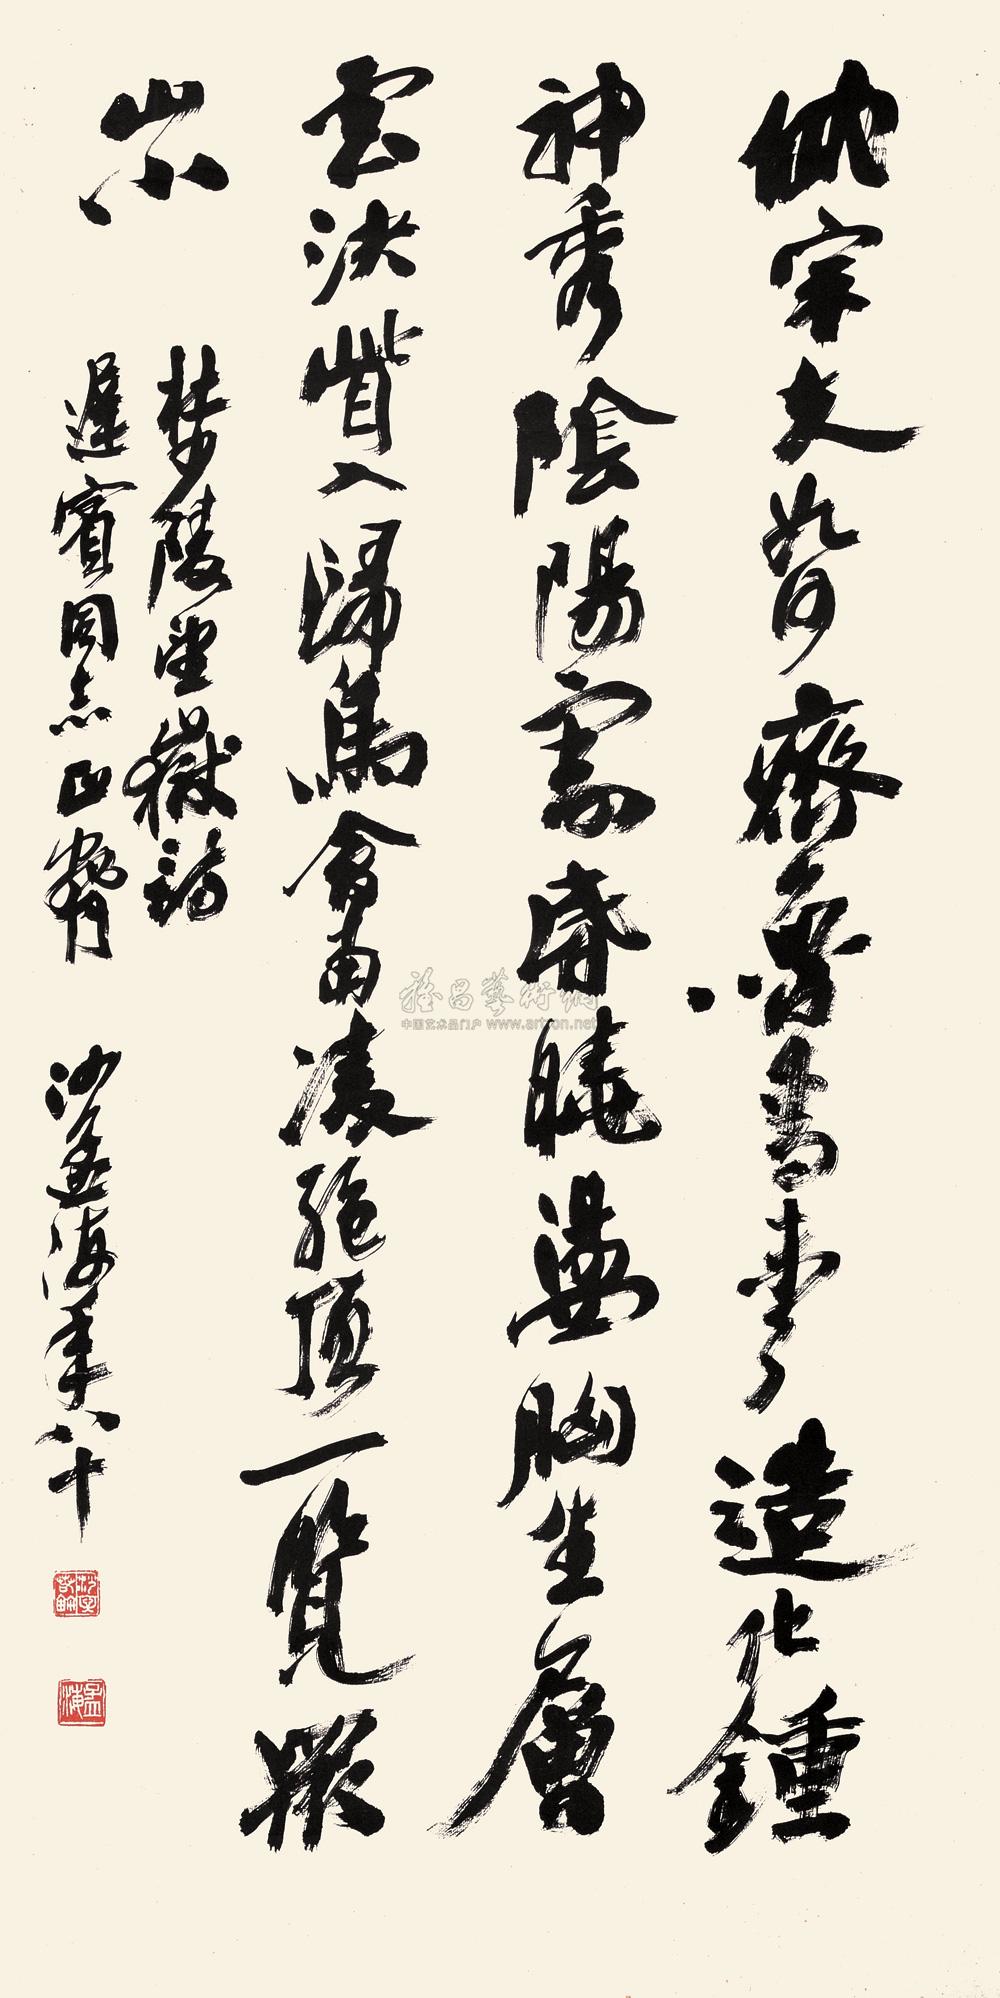 岱宗夫如何齊魯青未了造化鍾
神秀陰陽割昏曉盪胸生層
雲決眥入歸鳥會當凌絕頂一覽眾
山小
杜少陵望嶽詩
遲賓同志正 沙孟海年八十
孟海
雅昌藝術網
中国艺术品门户 www.artron.net